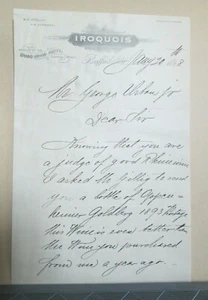 IROQUOIS
Buffalo, Jany 20th
Mr. George Urban Jr
Dear Sir
Knowing that you are
a judge of good Rhine wine
I asked the Gilka to send
you a bottle of Oppen-
heimer Goldberg 1893 Vintage
this Wine is even better than
the Wine you purchased
from me a year ago